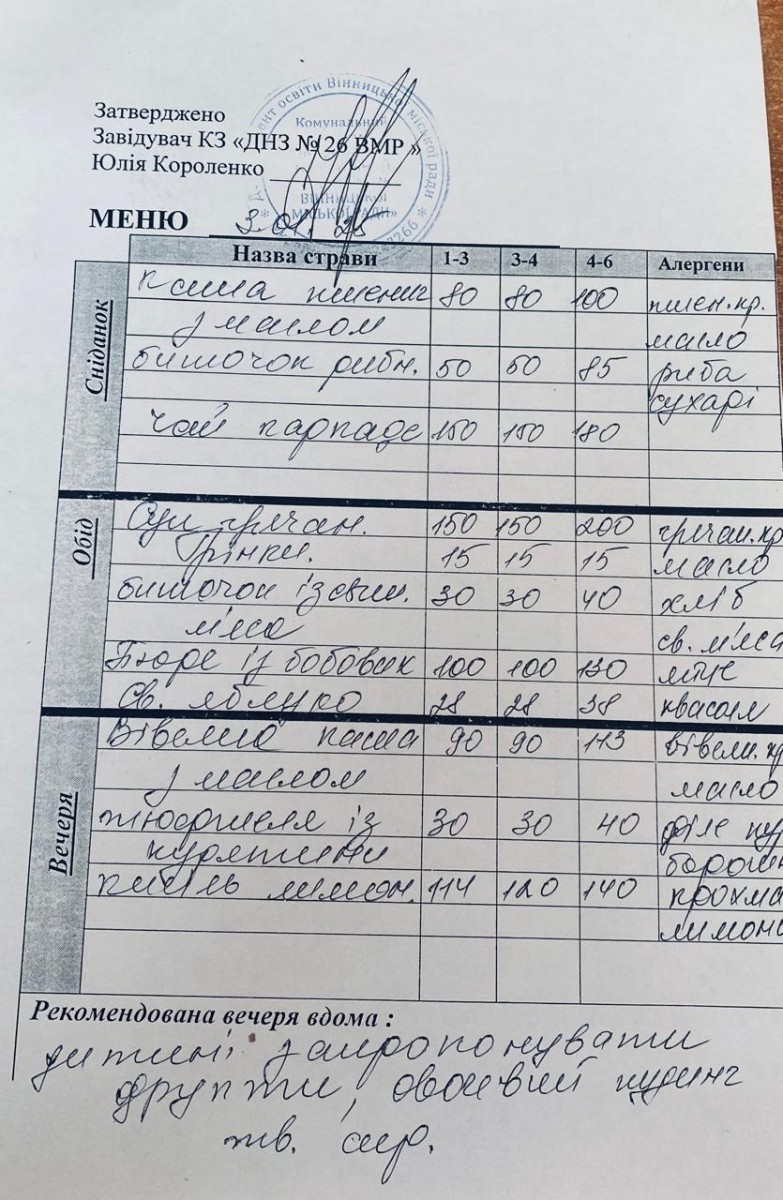 Затверджено
Завідувач КЗ «ДНЗ №26 ВМР »
Юлія Короленко
Комунальний
ВІННИЦЬКОЇ
МІСЬКОЇ РАДИ»
МЕНЮ 3.01.25
Назва страви 1-3 3-4 4-6 Алергени
Сніданок
каша пшенич 80 80 100 пшен.кр.
з маслом масло
биточок рибн. 50 60 85 риба
сухарі
чай каркаде 150 150 180
Обід
Суп гречан. 150 150 200 гречан.кр
Грінки. 15 15 15 масло
биточки із свин. 30 30 40 хліб
м'яса св. м'яса
Пюре із бобових 100 100 130 яйце
Св. яблуко 28 28 38 квасоля
Вечеря
Вівсяна каша 90 90 113 вівсян.кр
з маслом масло
тюфтеля із 30 30 40 філе кур
курятини борошн
кисіль лимон. 114 120 140 крохма
лимон
Рекомендована вечеря вдома :
дитині запропонувати
фрукти, овочевий пудинг
тв. сир.